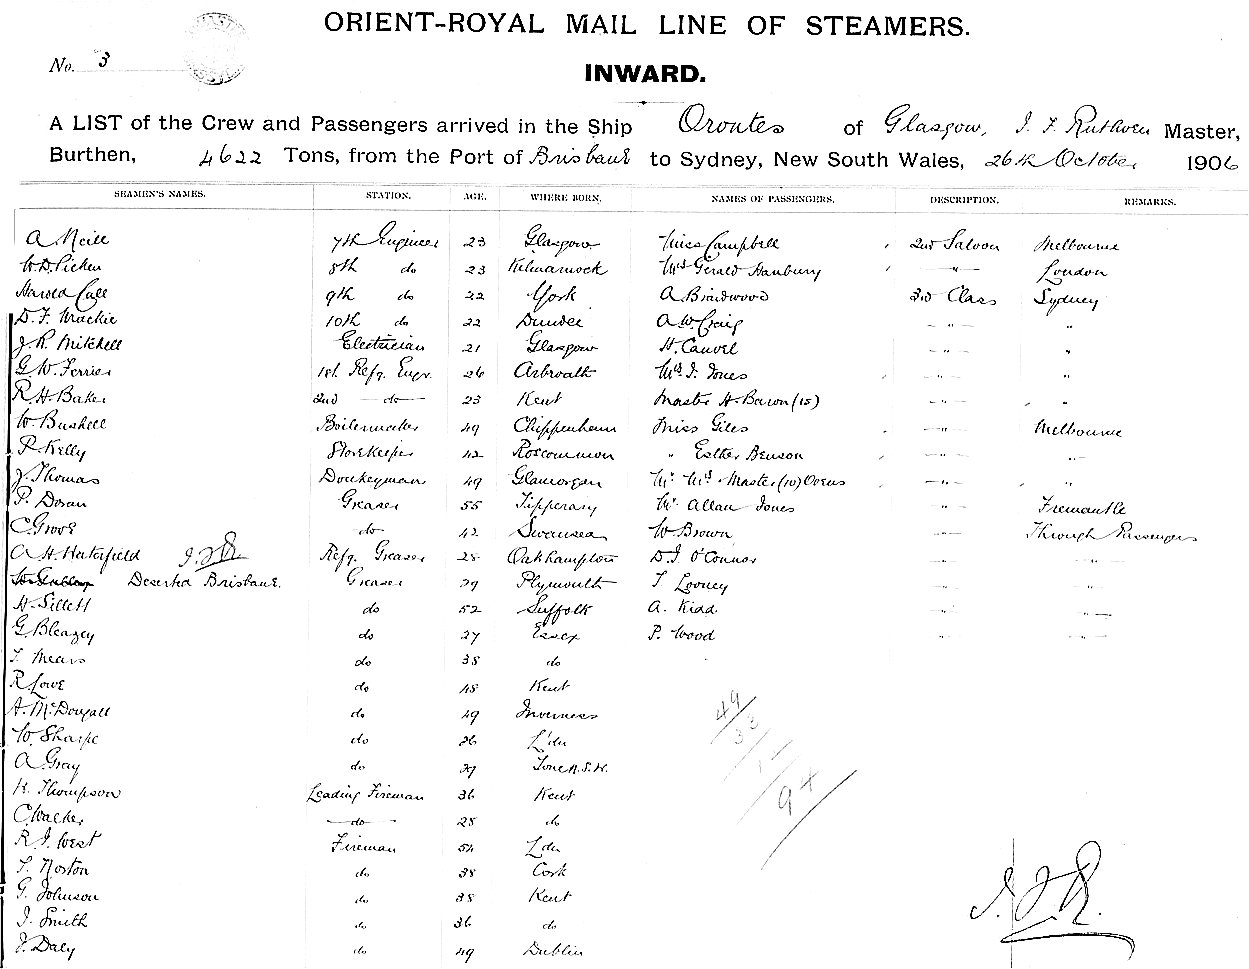 ORIENT-ROYAL MAIL LINE OF STEAMERS.
No. 3
INWARD.
A LIST of the Crew and Passengers arrived in the Ship Orontes of Glasgow, J. F. Ruthven Master,
Burthen, 4622 Tons, from the Port of Brisbane to Sydney, New South Wales, 26th October 1906
SEAMEN'S NAMES. STATION. AGE. WHERE BORN. NAMES OF PASSENGERS. DESCRIPTION. REMARKS.
A Neill 7th Engineer 23 Glasgow Miss Campbell 2nd Saloon Melbourne
W.D. Picken 8th do 23 Kilmarnock Mrs Gerald Hanbury " London
Harold Call 9th do 22 York A Briadwood 3rd Class Sydney
D. F. Mackie 10th do 22 Dundee A W Craig " "
J. R. Mitchell Electrician 21 Glasgow H. Cauvel " "
G. W. Ferrier 1st Refg. Engr. 26 Arbroath Mrs J. Jones " "
R. H. Baker 2nd do 23 Kent Master H Baron (15) " "
W. Bushell Boilermaker 49 Chippenham Miss Giles " Melbourne
P. Kelly Storekeeper 42 Roscommon " Esther Benson " "
J. Thomas Donkeyman 49 Glamorgan Mr Mrs Master (10) Ovens " "
P. Doran Greaser 55 Tipperary Mr Allan Jones " Fremantle
C. Grove do 42 Swansea W Brown " Through Passengers
A. H. Hatefield J.F.R. Refg. Greaser 28 Oakhampton D. J. O'Connor " "
Deserted Brisbane. Greaser 29 Plymouth T Looney " "
H. Sillett do 52 Suffolk A. Kidd " "
G Bleazey do 27 Essex P. Wood " "
T. Mears do 38 do
R Lowe do 48 Kent
A. McDougall do 49 Inverness
W. Sharpe do 26 L'don
A. Gray do 29 N.S.W.
H. Thompson Leading Fireman 36 Kent
C Walker do 28 do
R. J. West Fireman 54 Ldon
T. Norton do 38 Cork
G. Johnson do 38 Kent
J. Smith do 36 do
J. Daly do 49 Dublin
49
33
94
J.F.R.